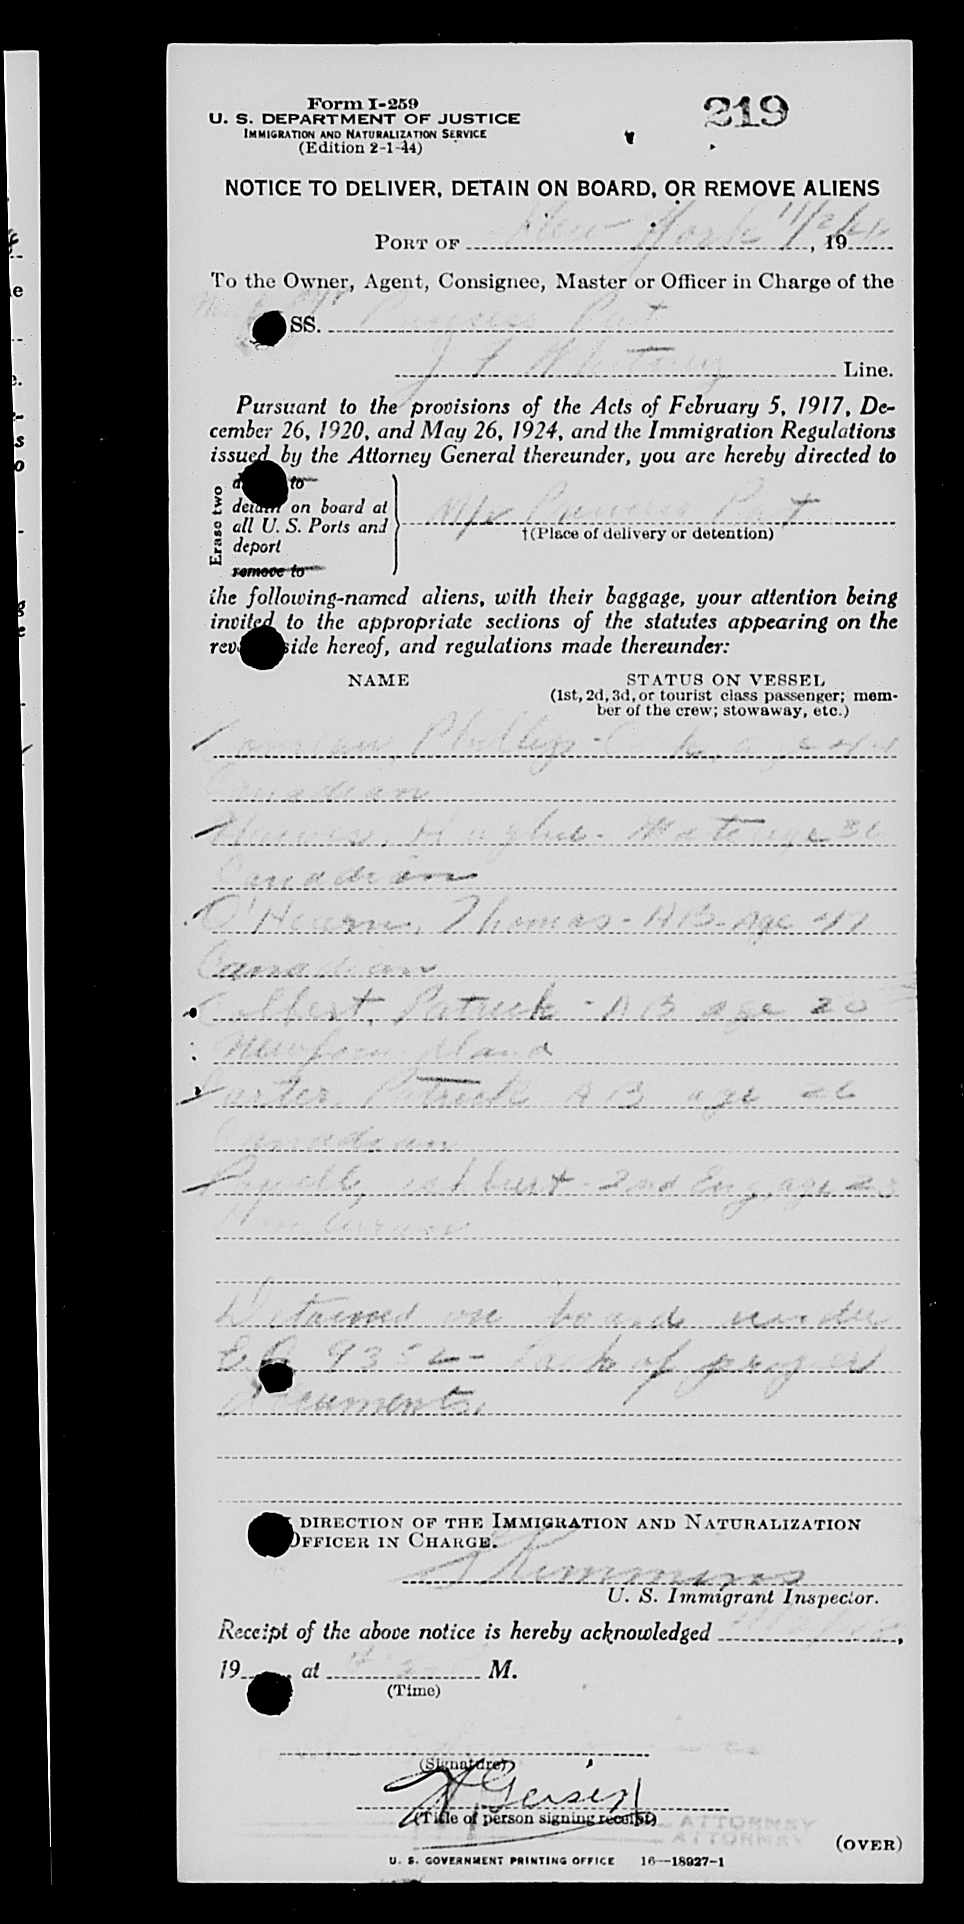 Form I-259
219
U. S. DEPARTMENT OF JUSTICE
IMMIGRATION AND NATURALIZATION SERVICE
(Edition 2-1-44)
NOTICE TO DELIVER, DETAIN ON BOARD, OR REMOVE ALIENS
PORT OF New York 11/2/44, 19
To the Owner, Agent, Consignee, Master or Officer in Charge of the
SS. Princess Pat
J F Whitney Line.
Pursuant to the provisions of the Acts of February 5, 1917, De-
cember 26, 1920, and May 26, 1924, and the Immigration Regulations
issued by the Attorney General thereunder, you are hereby directed to
Erase two
to
detain on board at
all U. S. Ports and
deport
remove to
M/V Princess Pat
†(Place of delivery or detention)
the following-named aliens, with their baggage, your attention being
invited to the appropriate sections of the statutes appearing on the
side hereof, and regulations made thereunder:
NAME
STATUS ON VESSEL
(1st, 2d, 3d, or tourist class passenger; mem-
ber of the crew; stowaway, etc.)
Phillip - age 44
Canadian
Hughie - Mate age 36
Canadian
O'Hearn, Thomas - AB - Age 47
Canadian
Colbert, Patrick - AB age 20
Newfoundland
Porter, Patrick AB age 26
Canadian
2nd Eng, age 23
Honduran
Detained on board under
E.O. 9352 - Lack of proper
documents.
DIRECTION OF THE IMMIGRATION AND NATURALIZATION
OFFICER IN CHARGE.
Kimmins
U. S. Immigrant Inspector.
Receipt of the above notice is hereby acknowledged
19 at M.
(Time)
(Signature)
(Title of person signing receipt)
ATTORNEY
ATTORNEY
(OVER)
U. S. GOVERNMENT PRINTING OFFICE 16—18927-1